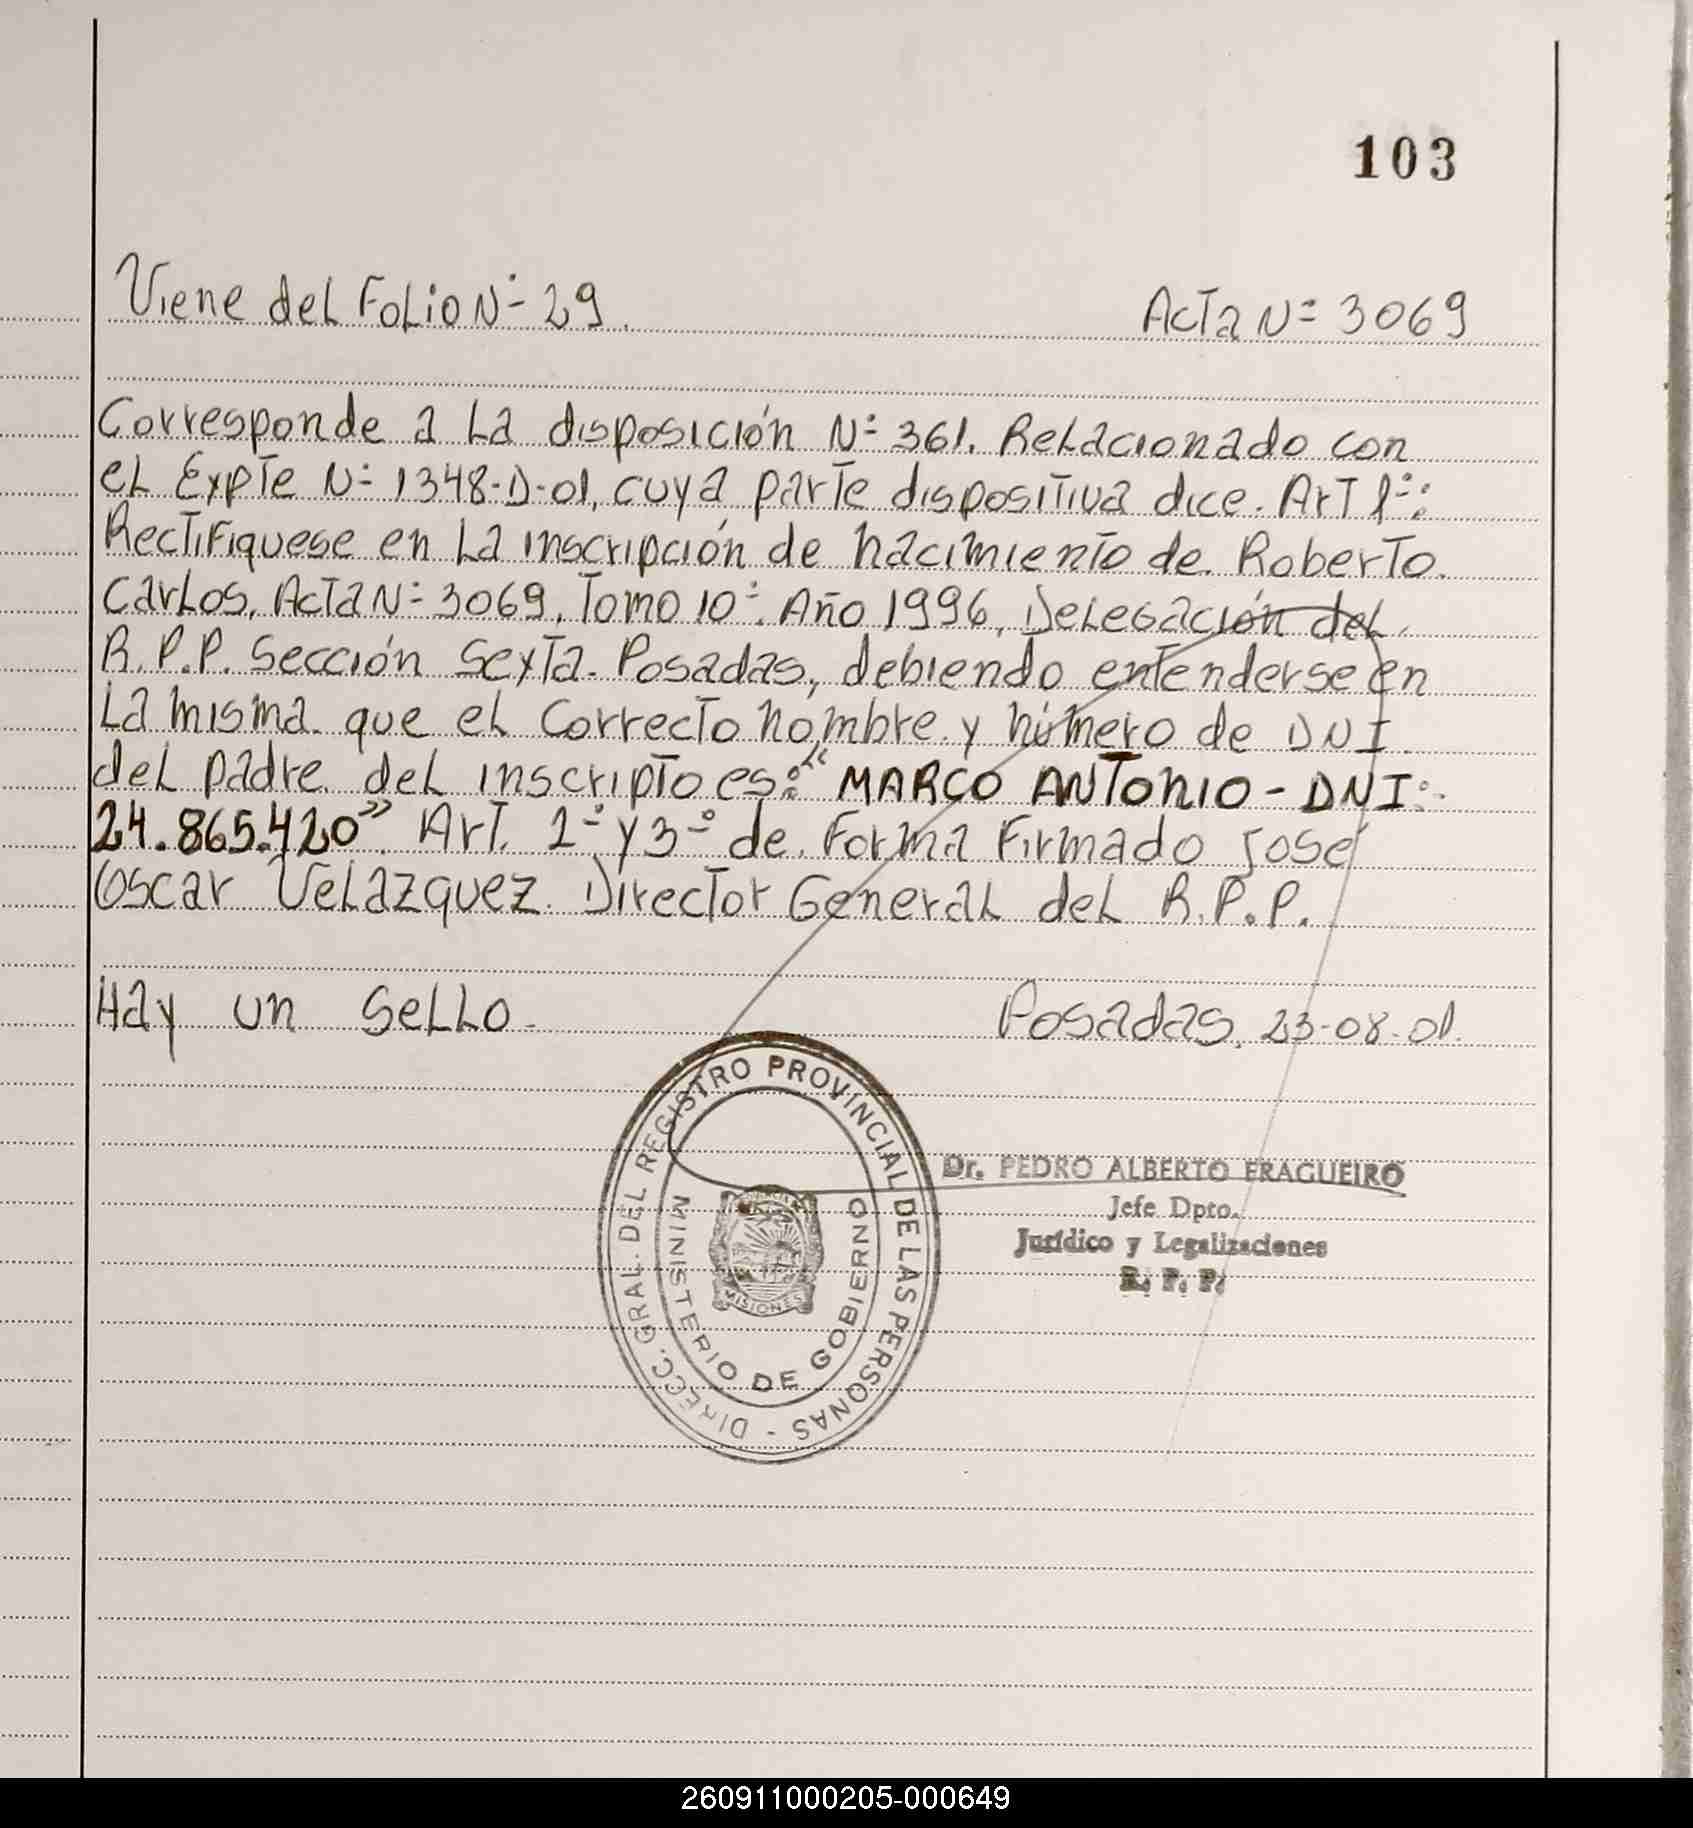 103
Viene del Folio Nº 29.
Acta Nº 3069
Corresponde a La disposición Nº 361. Relacionado con
el Expte Nº 1348-D-01, cuya parte dispositiva dice. Art 1º:
Rectifiquese en La inscripción de nacimiento de Roberto
Carlos, Acta Nº 3069, Tomo 10º. Año 1996, Delegación del
R.P.P. Sección Sexta. Posadas, debiendo entenderse en
La misma que el Correcto nombre y número de DNI
del padre del inscripto es: "MARCO ANTONIO - DNI:
24.865.420". Art. 2º y 3º de Forma Firmado José
Oscar Velazquez. Director General del R.P.P.
Hay un Sello.
Posadas, 23-08-01.
DIRECC. GRAL. DEL REGISTRO PROVINCIAL DE LAS PERSONAS -
MINISTERIO DE GOBIERNO
MISIONES
Dr. PEDRO ALBERTO FRAGUEIRO
Jefe Dpto.
Jurídico y Legalizaciones
R. P. P.
260911000205-000649